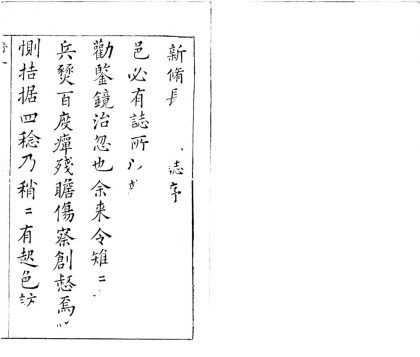 新脩長 誌序
邑必有誌所以
勸鑒鏡治忽也余来令雉〻
兵燹百度癉残瞻傷察創愁焉
惻拮据四稔乃稍〻有起色訪